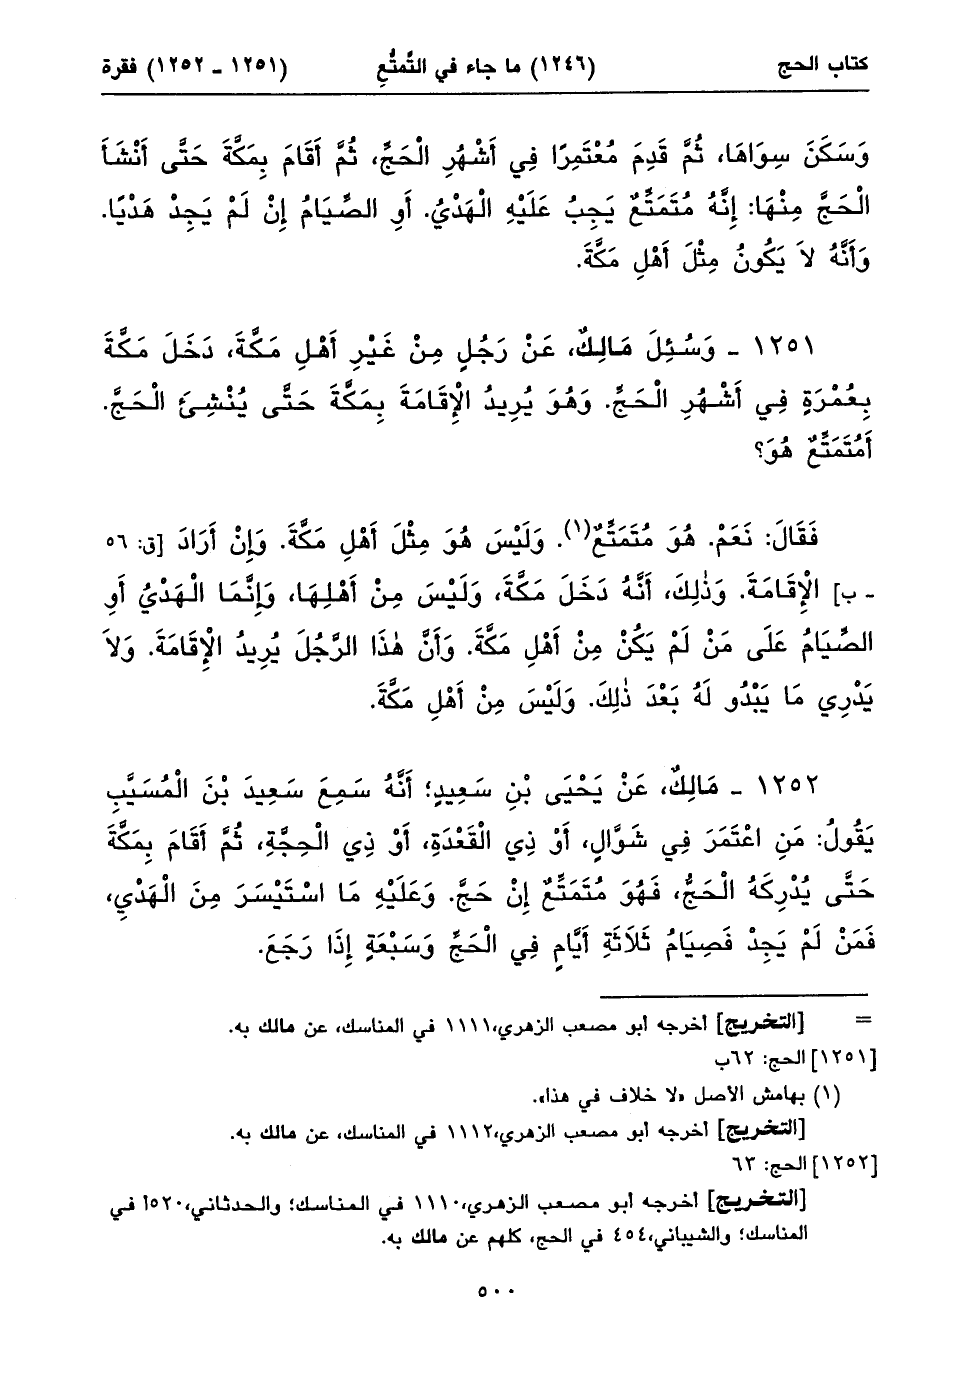 كتاب الحج (١٢٤٦) ما جاء في التَّمتُّعِ (١٢٥١ - ١٢٥٢) فقرة
وَسَكَنَ سِوَاهَا، ثُمَّ قَدِمَ مُعْتَمِرًا فِي أَشْهُرِ الْحَجِّ، ثُمَّ أَقَامَ بِمَكَّةَ حَتَّى أَنْشَأَ
الْحَجَّ مِنْهَا: إِنَّهُ مُتَمَتِّعٌ يَجِبُ عَلَيْهِ الْهَدْيُ. أَوِ الصِّيَامُ إِنْ لَمْ يَجِدْ هَدْيًا.
وَأَنَّهُ لاَ يَكُونُ مِثْلَ أَهْلِ مَكَّةَ.
١٢٥١ - وَسُئِلَ مَالِكٌ، عَنْ رَجُلٍ مِنْ غَيْرِ أَهْلِ مَكَّةَ، دَخَلَ مَكَّةَ
بِعُمْرَةٍ فِي أَشْهُرِ الْحَجِّ. وَهُوَ يُرِيدُ الْإِقَامَةَ بِمَكَّةَ حَتَّى يُنْشِئَ الْحَجَّ.
أَمُتَمَتِّعٌ هُوَ؟
فَقَالَ: نَعَمْ. هُوَ مُتَمَتِّعٌ(١). وَلَيْسَ هُوَ مِثْلَ أَهْلِ مَكَّةَ. وَإِنْ أَرَادَ [ق: ٥٦
- ب] الْإِقَامَةَ. وَذٰلِكَ، أَنَّهُ دَخَلَ مَكَّةَ، وَلَيْسَ مِنْ أَهْلِهَا، وَإِنَّمَا الْهَدْيُ أَوِ
الصِّيَامُ عَلَى مَنْ لَمْ يَكُنْ مِنْ أَهْلِ مَكَّةَ. وَأَنَّ هٰذَا الرَّجُلَ يُرِيدُ الْإِقَامَةَ. وَلاَ
يَدْرِي مَا يَبْدُو لَهُ بَعْدَ ذٰلِكَ. وَلَيْسَ مِنْ أَهْلِ مَكَّةَ.
١٢٥٢ - مَالِكٌ، عَنْ يَحْيَى بْنِ سَعِيدٍ؛ أَنَّهُ سَمِعَ سَعِيدَ بْنَ الْمُسَيَّبِ
يَقُولُ: مَنِ اعْتَمَرَ فِي شَوَّالٍ، أَوْ ذِي الْقَعْدَةِ، أَوْ ذِي الْحِجَّةِ، ثُمَّ أَقَامَ بِمَكَّةَ
حَتَّى يُدْرِكَهُ الْحَجُّ، فَهُوَ مُتَمَتِّعٌ إِنْ حَجَّ. وَعَلَيْهِ مَا اسْتَيْسَرَ مِنَ الْهَدْيِ،
فَمَنْ لَمْ يَجِدْ فَصِيَامُ ثَلاَثَةِ أَيَّامٍ فِي الْحَجِّ وَسَبْعَةٍ إِذَا رَجَعَ.
= [التخريج] أخرجه أبو مصعب الزهري،١١١١ في المناسك، عن مالك به.
[١٢٥١] الحج: ٦٢ب
(١) بهامش الأصل «لا خلاف في هذا».
[التخريج] أخرجه أبو مصعب الزهري،١١١٢ في المناسك، عن مالك به.
[١٢٥٢] الحج: ٦٣
[التخريج] أخرجه أبو مصعب الزهري،١١١٠ في المناسك؛ والحدثاني،٥٢٠أ في
المناسك؛ والشيباني،٤٥٤ في الحج، كلهم عن مالك به.
٥٠٠